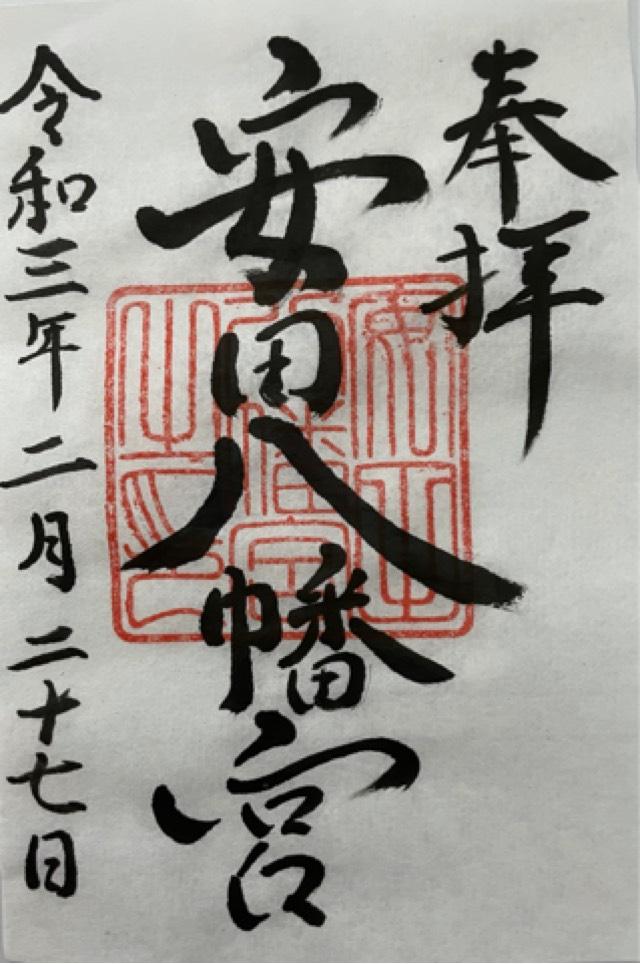 奉拝
安田八幡宮
令和三年二月二十七日